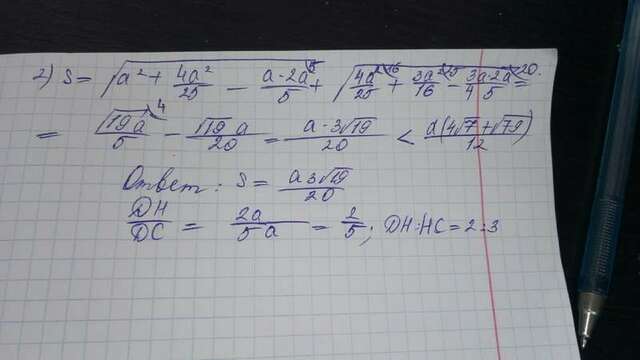 2) S = √(a² + 4a²/25 − a·2a/5) + √(4a²/25 + 3a²/16 − 3a·2a/4·5) =
= √19 a/5 − √19 a/20 = a·3√19/20 < a(4√7+√79)/12
Ответ: S = a3√19/20
DH/DC = 2a/5a = 2/5; DH:HC = 2:3